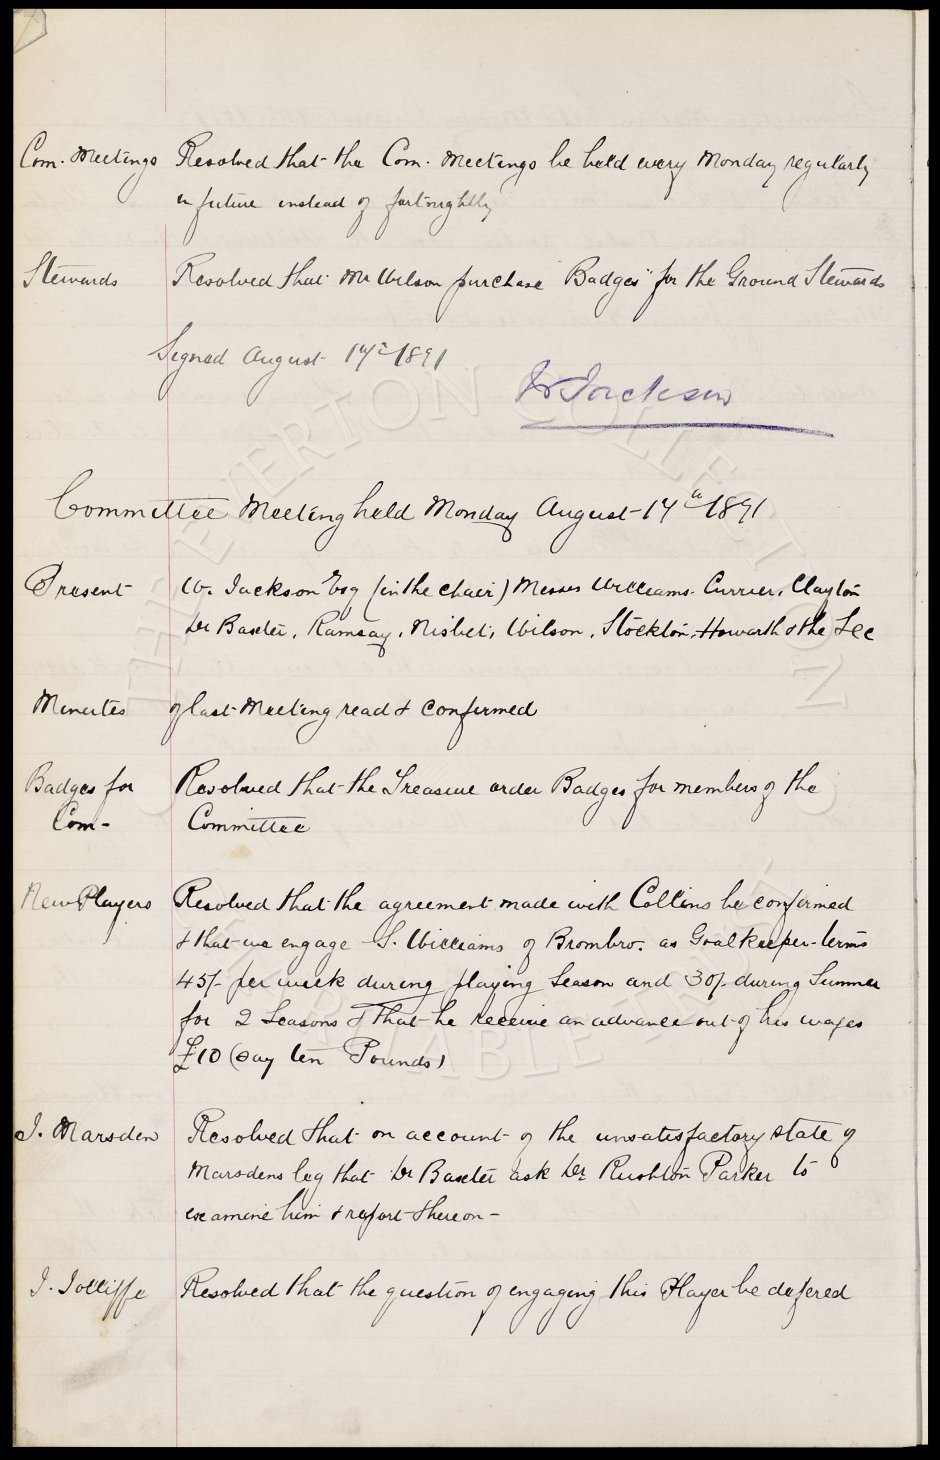 Com. Meetings Resolved that the Com. Meetings be held every Monday regularly
in future instead of fortnightly
Stewards Resolved that Mr Wilson purchase "Badges" for the Ground Stewards
Signed August 17th 1891
W Jackson
Committee Meeting held Monday August 17th 1891
Present W. Jackson Esq (in the chair) Messrs Williams. Currier, Clayton
Dr Baxter, Ramsay, Nisbet, Wilson, Stockton, Howarth & the Sec
Minutes of last Meeting read & confirmed
Badges for Resolved that the Treasurer order Badges for members of the
Com- Committee
New Players Resolved that the agreement made with Collins be confirmed
& that we engage S. Williams of Brombro. as Goalkeeper - terms
45/- per week during playing Season and 30/- during Summer
for 2 Seasons & that he receive an advance out of his wages
£10 (say ten Pounds)
J. Marsden Resolved that on account of the unsatisfactory state of
Marsdens leg that Dr Baxter ask Dr Rushton Parker to
examine him & report thereon -
J. Jolliffe Resolved that the question of engaging this Player be defered
THE EVERTON COLLECTION
CHARITABLE TRUST